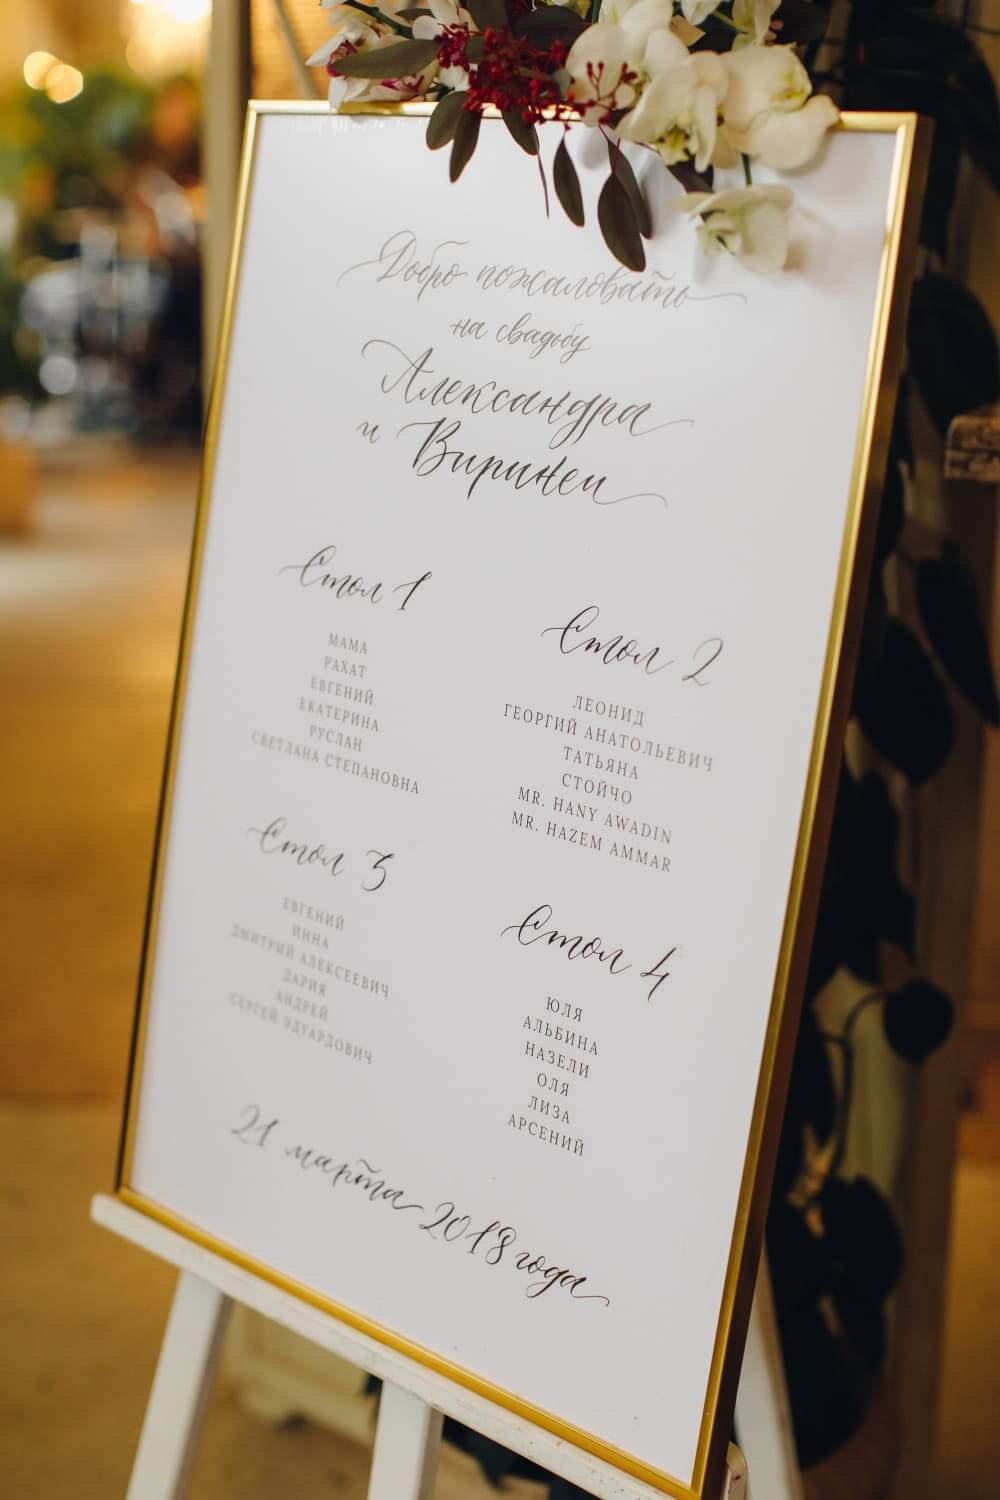 Добро пожаловать
на свадьбу
Александра
и Виринеи
Стол 1
МАМА
РАХАТ
ЕВГЕНИЙ
ЕКАТЕРИНА
РУСЛАН
СВЕТЛАНА СТЕПАНОВНА
Стол 2
ЛЕОНИД
ГЕОРГИЙ АНАТОЛЬЕВИЧ
ТАТЬЯНА
СТОЙЧО
MR. HANY AWADIN
MR. HAZEM AMMAR
Стол 3
ЕВГЕНИЙ
ИННА
ДМИТРИЙ АЛЕКСЕЕВИЧ
ДАРИЯ
АНДРЕЙ
СЕРГЕЙ ЭДУАРДОВИЧ
Стол 4
ЮЛЯ
АЛЬБИНА
НАЗЕЛИ
ОЛЯ
ЛИЗА
АРСЕНИЙ
21 марта 2018 года